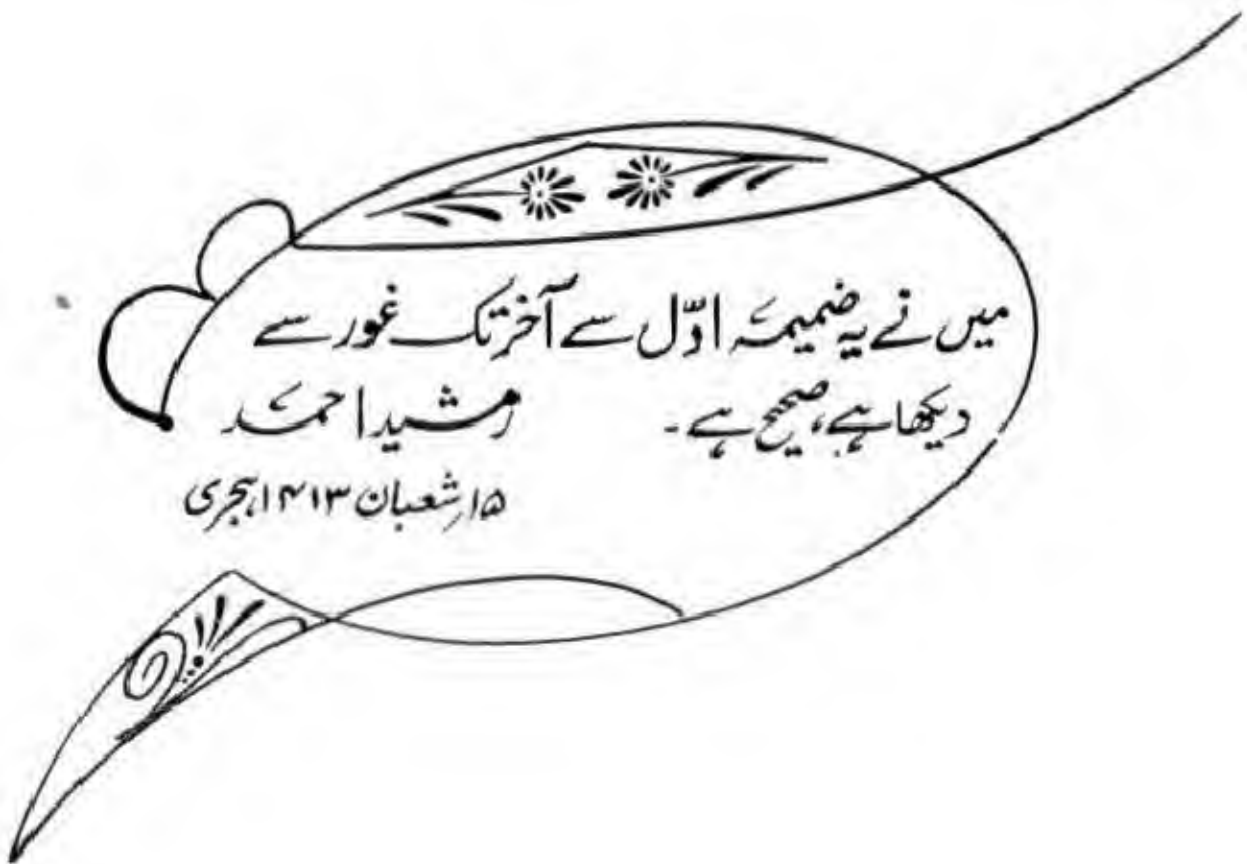 میں نے یہ ضمیمہ اوّل سے آخر تک غور سے
دیکھا ہے، صحیح ہے۔ رشید احمد
۱۵ر شعبان ۱۴۱۳ ہجری